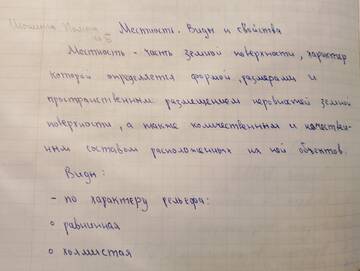 Местность. Виды и свойства
Местность - часть земной поверхности, характер
которой определяется формой, размерами и
пространственным размещением неровностей земной
поверхности, а также количественным и качествен-
ным составом расположенных на ней объектов.
Виды:
- по характеру рельефа:
◦ равнинная
◦ холмистая